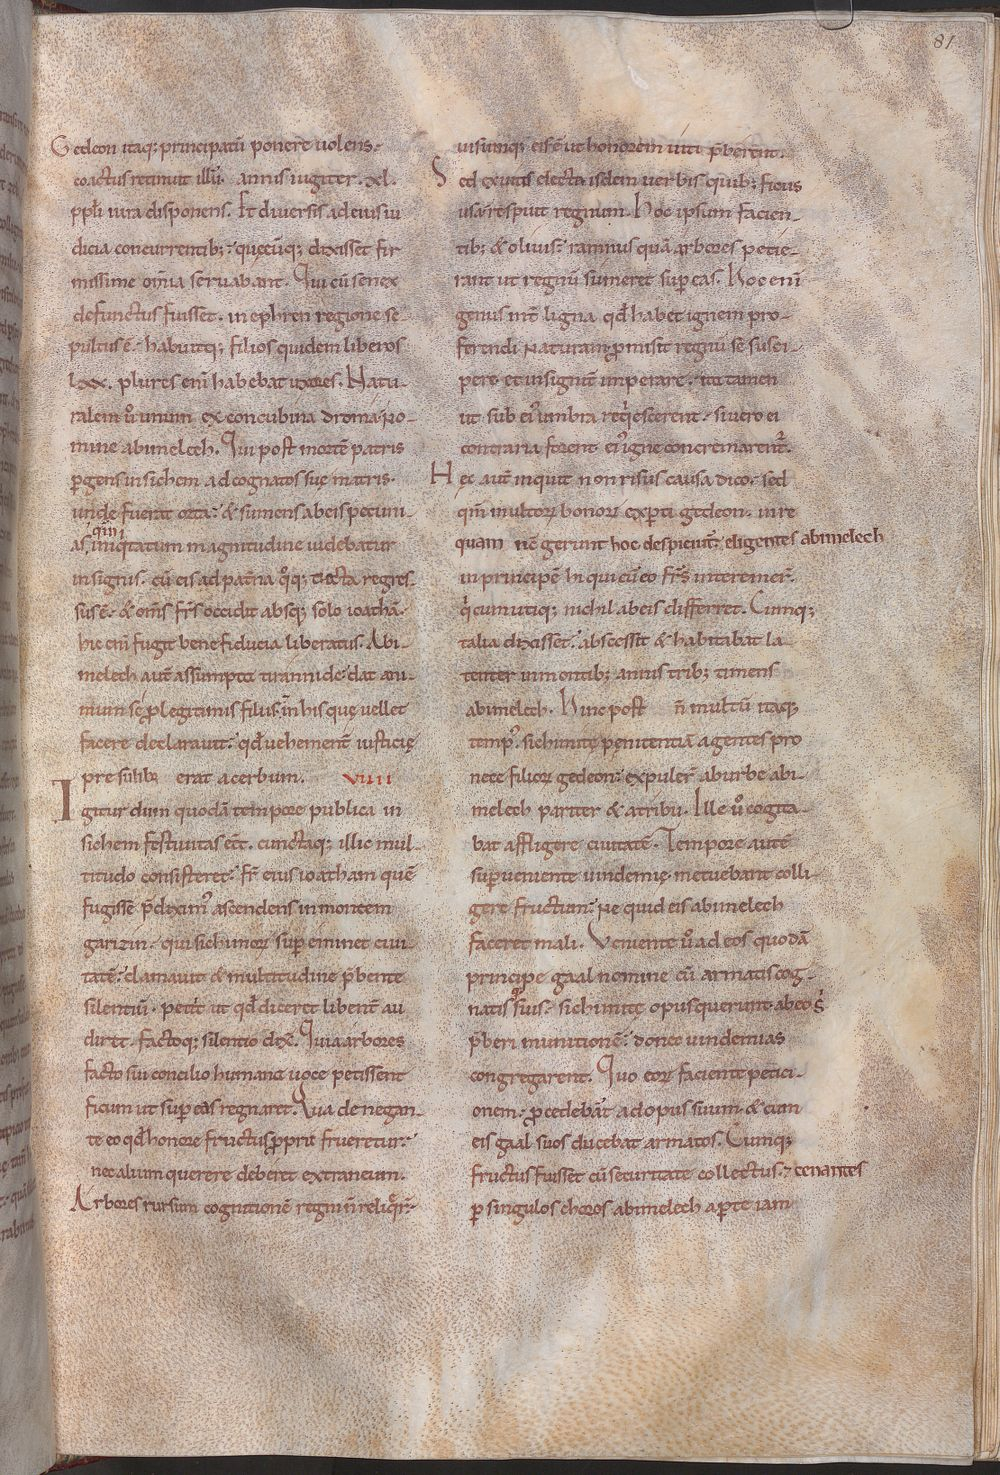 81
Gedeon itaq; principatū ponere uolens.
coactus retinuit illū. annis iugiter. xl.
ppl̄i iura disponens. Et diuersis ad eius iu
dicia concurrentib; quęcūq; dixisset fir
missime om̄ia seruabant. Qui cū senex
defunctus fuisset. in ephren regione se
pultus ē. habuitq; filios quidem liberos
lxx. plures enī habebat uxores. Natu
ralem ū unum ex concubina droma no
mine abimelech. Qui post mortē patris
ꝑgens in sichem ad cognatos suę matris.
unde fuerat orta. & sumens ab eis pecuni
as qm̄ iniq̇tatum magnitudine uidebatur
insignis. cū eis ad patna q̊q; tecta regres
sus ē. & om̄s fr̄s occidit absq; solo ioathā.
hic enī fugit bene fiducia liberatus. Abi
melech aut̄ assumpta tirannide. dat ani
mum se ꝓ legitimis filiis. in his quę uellet
facere declarauit. qd̄ uehement̄ iusticię
pre sulib; erat acerbum. VIIII
Igitur dum quodā tempore publica in
sichem festiuitas eēt. cunctaq; illic mul
titudo consisteret. fr̄ eius ioatham quē
fugisse p̄diximꝰ ascendens in montem
garizin. qui sichimoꝝ sup eminet ciui
tatē. clamauit & multitudine p̄bente
silentiū. petiit ut qd̄ diceret libent̄ au
diret. factoq; silentio dix̄. Quia arbores
facto sui concilio humana uoce petissent
ficum ut sup eas regnaret. Qua de negan
te eo qd̄ honore fructus ꝓprii frueretur.
nec alium querere deberet extraneum.
Arbores rursum cognitionē regni ñ reliq̊r̄.
uisumq; eis ē ut honorem uiti p̄berent.
Sed & uitis electa isdem uerbis quib; ficus
usa respuit regnum. Hoc ipsum facien
tib; & oliuis. ramnus quā arbores petie
rant ut regnū sumeret sup eas. Hoc enī
genus int̄ ligna qd̄ habet ignem pro
ferendi naturam ꝓmisit regnū se susci
pere et insignit̄ imperare. ita tamen
ut sub eiꝰ umbra req̇escerent. si uero ei
contraria forent eiꝰ igne concremarent̄.
Hęc aut̄ inquit non risus causa dico. sed
qm̄ multoꝝ bonoꝝ exꝑti gedeon. in re
quam nē gerunt hoc despiciunt. eligentes abimelech
in principē in qui cū eo fr̄s interemer̄.
q̇ cum utiq; nichil ab eis differret. Cumq;
talia dixisset. abscessit & habitabat la
tenter in montib; annis trib; timens
abimelech. Hinc post ñ multū itaq;
tempꝰ. sichimitę penitentiā agentes pro
nece filioꝝ gedeon. expuler̄ ab urbe abi
melech pariter & a tribu. Ille ū cogita
bat affligere ciuitatē. Tempore autē
sup ueniente uindemię. metuebant colli
gere fructum. ne quid eis abimelech
faceret mali. Veniente ū ad eos quodā
principe gaal nomine cū armatis cog
natis q; suis. sichimitę opus querunt ab eo s̄
p̄beri munitionē. donec uindemias
congregarent. Quo eoꝝ faciente petici
onem. ꝓcedebāt ad opus suum. & cum
eis gaal suos ducebat armatos. Cumq;
fructus fuisset cū securitate collectus. ⁊ cenantes
ꝑ singulos choros abimelech aperte iam